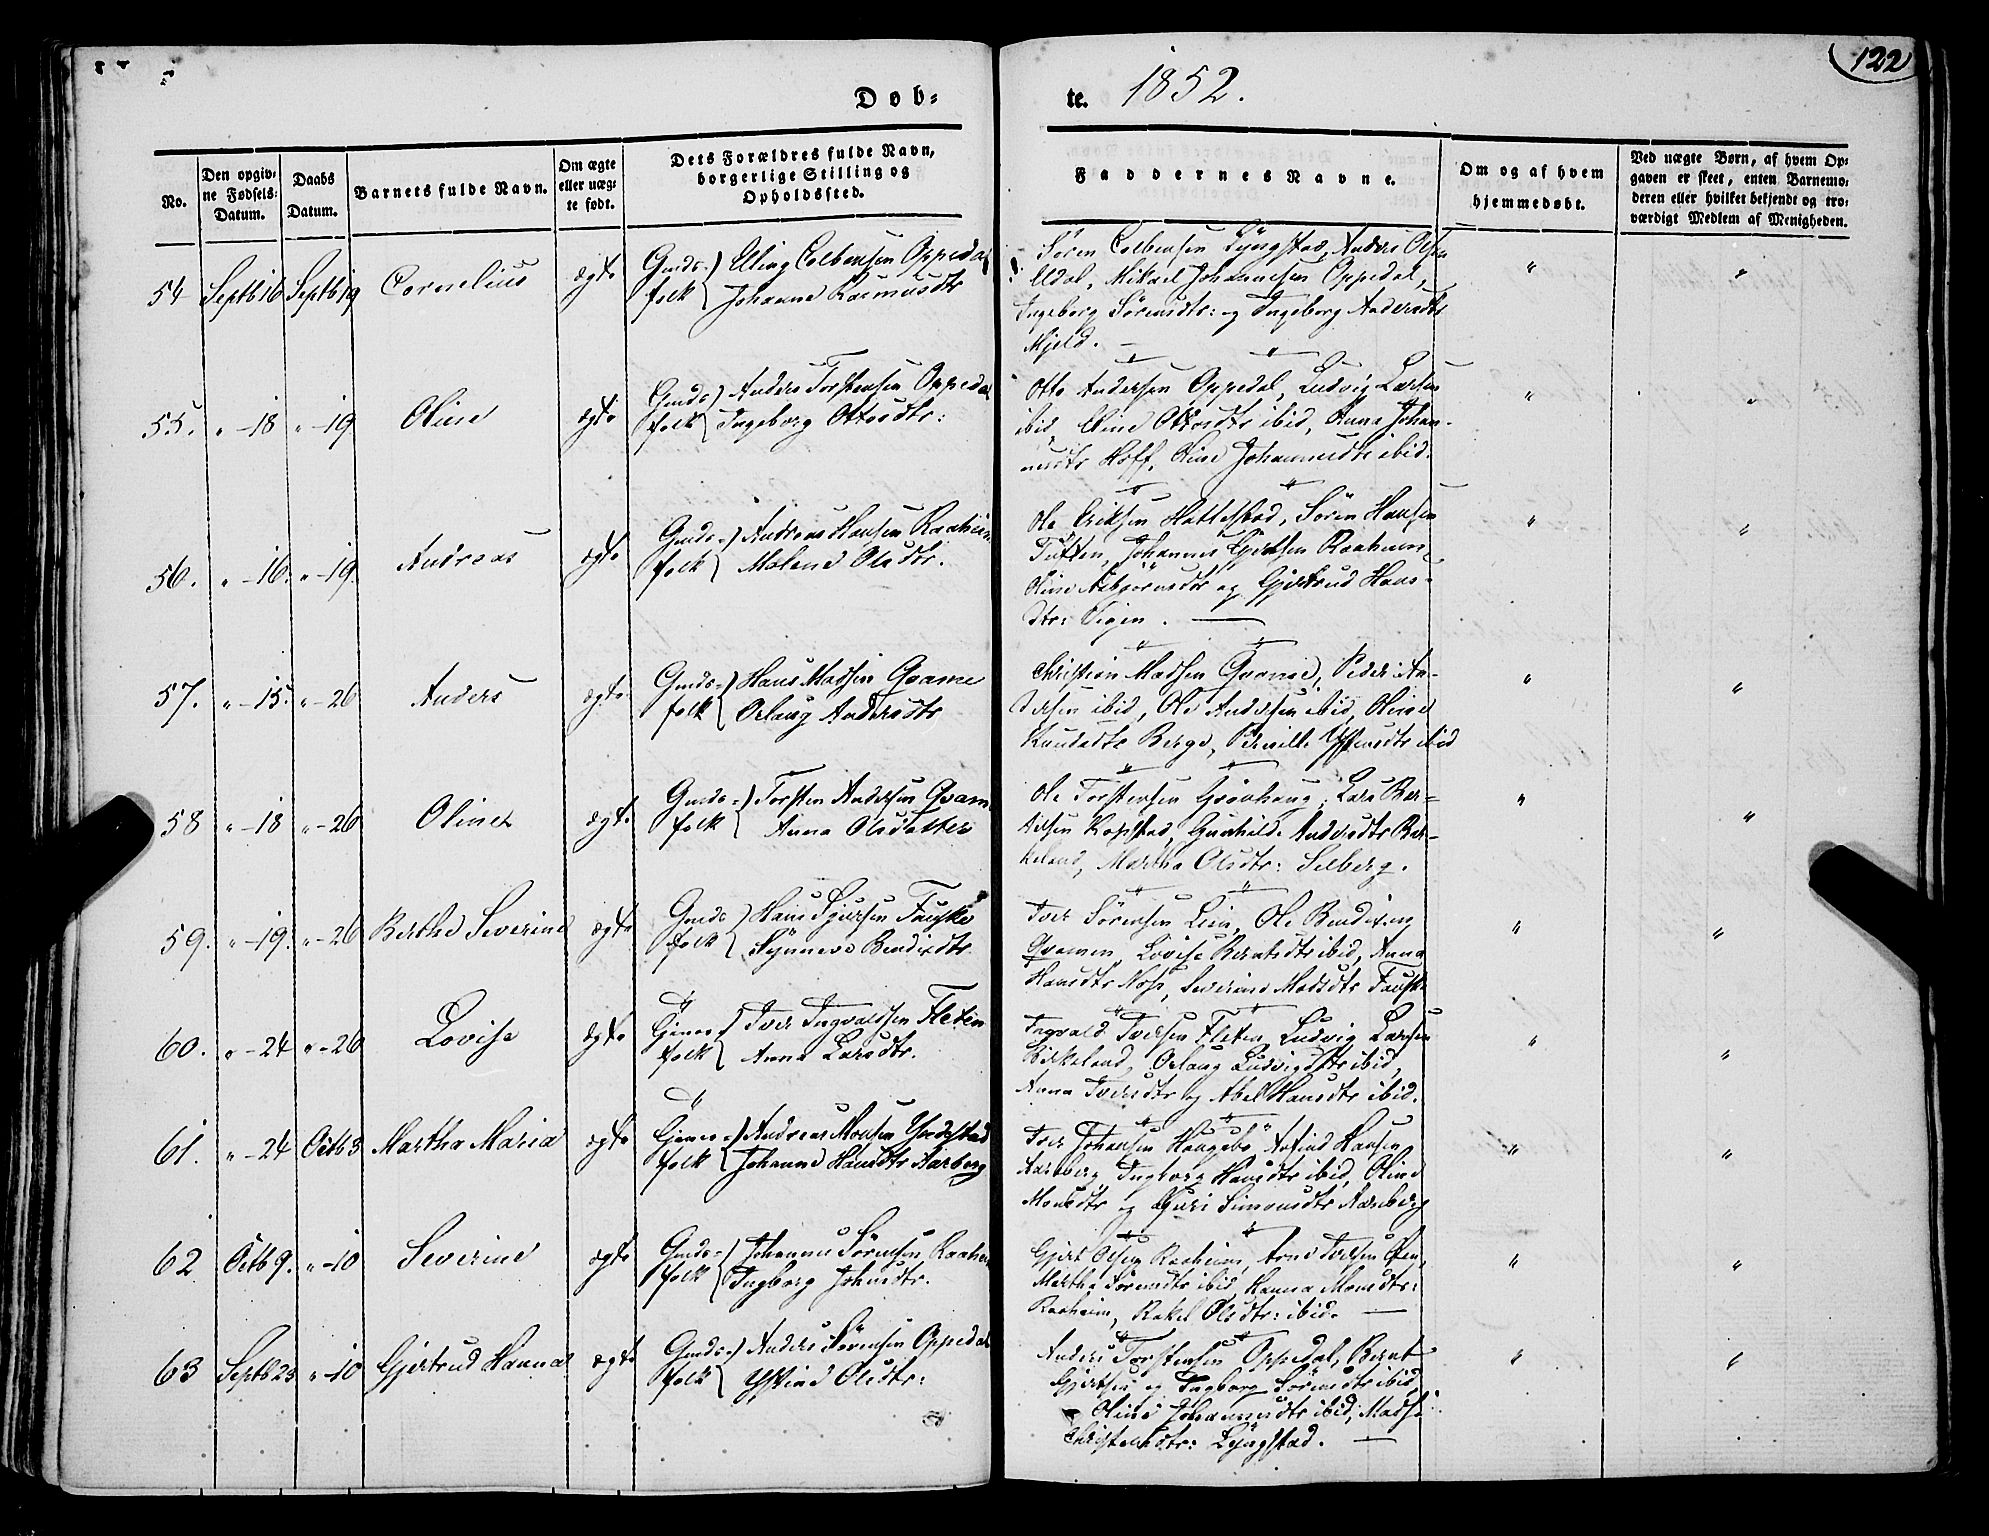 122
Døb-
te. 1852.
No.
Den opgiv-
ne Fødsels-
Datum.
Daabs
Datum.
Barnets fulde Navn.
Om ægte
eller uæg-
te født.
Dets Forældres fulde Navn,
borgerlige Stilling og
Opholdssted.
Faddernes Navne.
Om og af hvem
hjemmedøbt.
Ved uægte Børn, af hvem Op-
gaven er skeet, enten Barnemo-
deren eller hvilket bekjendt og tro-
værdigt Medlem af Menigheden.
54 Septb 16 Septb 19 Cornelius ægte Gmds- folk Elling Colbensen Oppedal
Johanne Rasmusdtr
Søren Colbensen Lyngstad, Anders Olsen
Eldal, Mikael Johannesen Oppedal,
Ingeborg Sørensdtr: og Ingeborg Andersdtr
Mjeld. —
55. " -18 " -19 Oline ægte Gmds- folk Anders Torstensen Oppedal
Ingeborg Ottosdtr:
Otto Andersen Oppedal, Ludvig Larsen
ibid, Eline Ottosdtr ibid, Anna Johan-
nesdtr Hoff, Oline Johannesdtr ibid.
56. " -16. " -19 Andreas ægte Gmds- folk Andreas Hansen Raaheim
Malene Olsdtr.
Ole Eriksen Hattestad, Søren Hansen
Tuften, Johannes Gjertsen Raaheim,
Oline Asbjørnsdtr og Gjertrud Hans-
dtr: Vigen. —
57. " -15. " -26 Anders ægte Gmds- folk Hans Madsen Qvame
Orlaug Andersdtr
Christian Madsen Qvame, Peder An-
dersen ibid, Ole Andersen ibid, Oline
Knudsdtr Berge, Pernille Ystensdtr ibid
58 " -18 " -26 Oline ægte Gmds- folk Torsten Andersen Qvam
Anna Olsdatter
Ole Torstensen Grønhaug, Lars Bar-
dsen Kopstad, Gunhilde Andersdtr Bir-
keland, Martha Olsdtr: Selberg.
59. " -19. " -26 Berthe Severine ægte Gmds folk Hans Sjursen Fauske
Synneve Bendixdtr
Iver Sørensen Lein, Ole Bendixen
Qvamen, Lovise Berntsdtr ibid, Anna
Hansdtr Noss, Severine Madsdtr Fauske
60. " -24 " -26 Lovise ægte Gjemes folk Iver Ingvaldsen Fleten
Anna Larsdtr.
Ingvald Iversen Fleten, Ludvig Larsen
Birkeland, Orlaug Ludvigsdtr ibid,
Anna Iversdtr og Abel Hansdtr ibid.
61. " -24 Octb 3 Martha Maria ægte Gjemes- folk Andreas Monsen Yndestad
Johanne Hansdtr Aarberg
Iver Johansen Haugebø, Hansen
Aarberg, Ingborg Hansdtr ibid, Oline
Monsdtr og Guri Simonsdtr Aareberg
62 Octb 9. " -10 Severine ægte Gmds- folk Johannes Sørensen Raaheim
Ingborg Johnsdtr.
Gjert Olsen Raaheim, Arne Iversen Øen,
Martha Sørensdtr ibid, Hanna Monsdtr:
Raaheim, Rakel Olsdtr: ibid. —
63 Septb 23 " -10 Gjertrud Hanna ægte Gmds- folk Anders Sørensen Oppedal
Ystine Olsdtr:
Anders Torstensen Oppedal, Bernt
Gjertsen og Ingborg Sørensdtr ibid,
Oline Johannesdtr ibid, Madsi
Christensdtr: Lyngstad. —